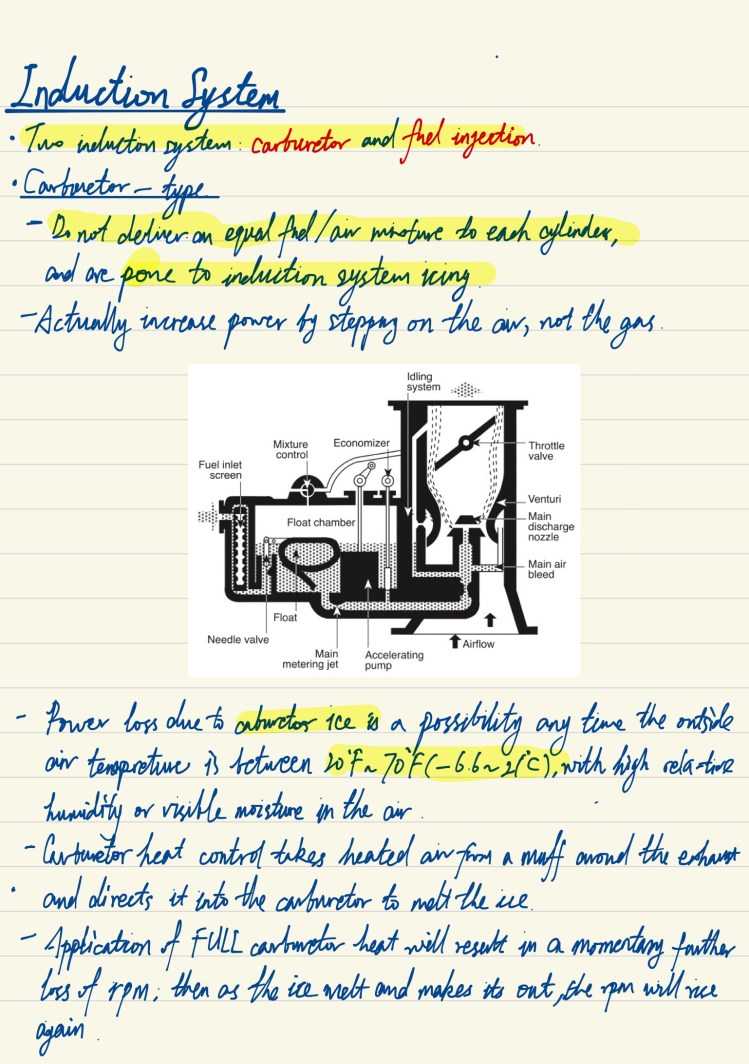 Induction System
· Two induction system: carburetor and fuel injection.
· Carburetor - type
- Do not deliver an equal fuel/air mixture to each cylinder,
and are pone to induction system icing
- Actually increase power by stepping on the air, not the gas.
Idling
system
Mixture
control
Economizer
Throttle
valve
Fuel inlet
screen
Venturi
Float chamber
Main
discharge
nozzle
Main air
bleed
Float
Needle valve
Main
metering jet
Accelerating
pump
Airflow
- Power loss due to caburetor ice is a possibility any time the outside
air tempreture is between 20°F~70°F(-6.6~21°C), with high relative
humidity or visible moisture in the air.
- Carburetor heat control takes heated air from a muff around the exhaust
· and directs it into the carburetor to melt the ice.
- Application of FULL carburetor heat will result in a momentary further
loss of rpm; then as the ice melt and makes its out, the rpm will rise
again.